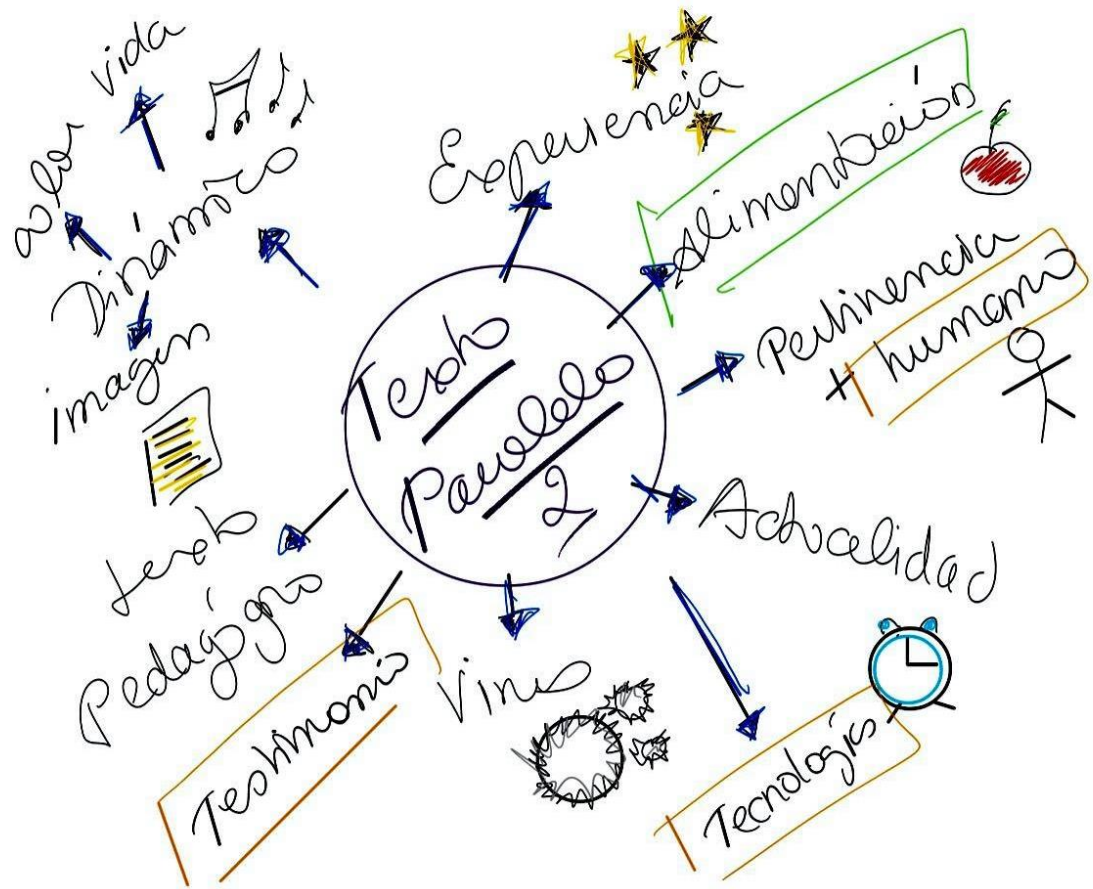 Texto
Paralelo
2
Experiencia
Alimentación
Pertinencia
+ humano
Actualidad
Tecnológic
Virus
Testimonio
texto
Pedagógico
Dinámico
vida
imagen